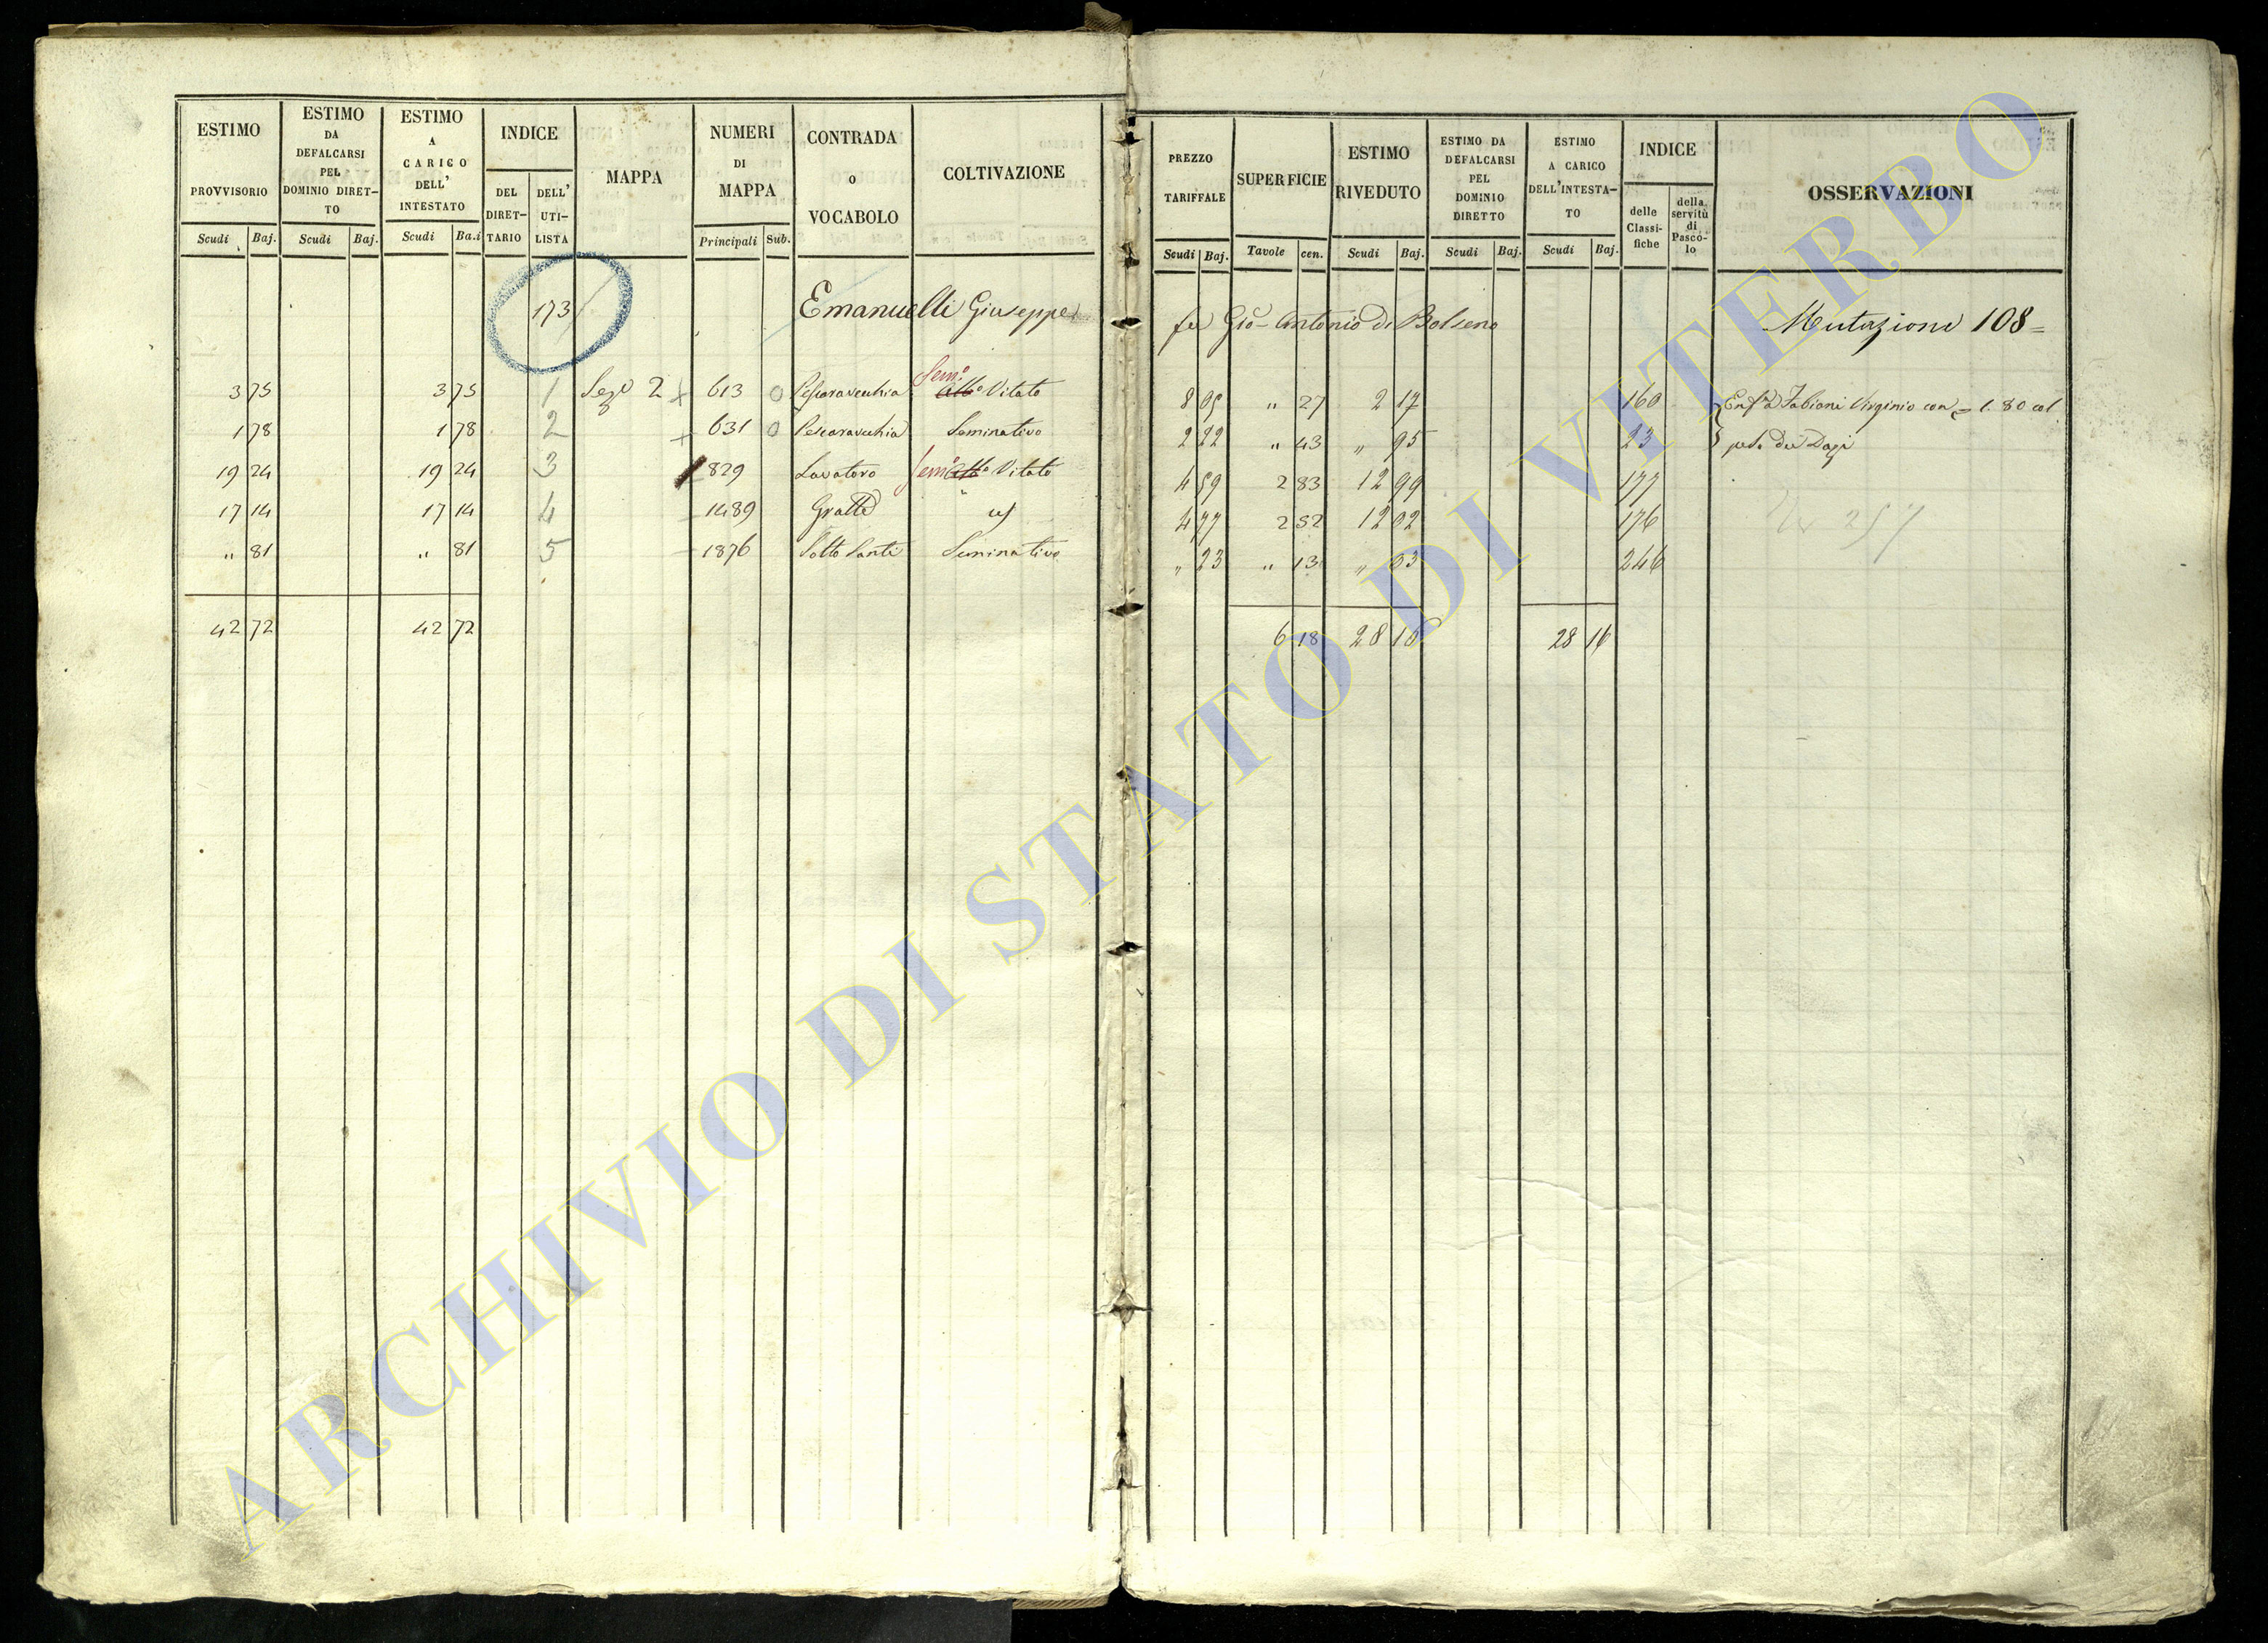 ESTIMO PROVVISORIO Scudi Baj.
ESTIMO DA DEFALCARSI PEL DOMINIO DIRET-TO Scudi Baj.
ESTIMO A CARICO DELL' INTESTATO Scudi Ba.i
INDICE DEL DIRET-TARIO DELL' UTI-LISTA
MAPPA
NUMERI DI MAPPA Principali Sub.
CONTRADA O VOCABOLO
COLTIVAZIONE
PREZZO TARIFFALE Scudi Baj.
SUPERFICIE Tavole cen.
ESTIMO RIVEDUTO Scudi Baj.
ESTIMO DA DEFALCARSI PEL DOMINIO DIRETTO Scudi Baj.
ESTIMO A CARICO DELL'INTESTA-TO Scudi Baj.
INDICE delle Classi-fiche della servitù di Pasco-lo
OSSERVAZIONI
173 Emanuelli Giuseppe fu Gio Antonio di Bolseno Mutazione 108 =
3 75 3 75 1 Sezе 2 613 0 Pescaravecchia Semo Vitato 8 05 " 27 2 17 160 Fabiani Virginio con 80 col
1 78 1 78 2 631 0 Pescaravecchia Seminativo 2 22 " 43 " 95 23
19 24 19 24 3 829 Lavatoro Semo Vitato 4 59 2 83 12 99 177
17 14 17 14 4 1489 Gratte " 4 77 2 52 12 02 176
" 81 " 81 5 1876 Sotto Sante Seminativo " 23 " 13 " 03 246
42 72 42 72 6 18 28 16 28 16
ARCHIVIO DI STATO DI VITERBO